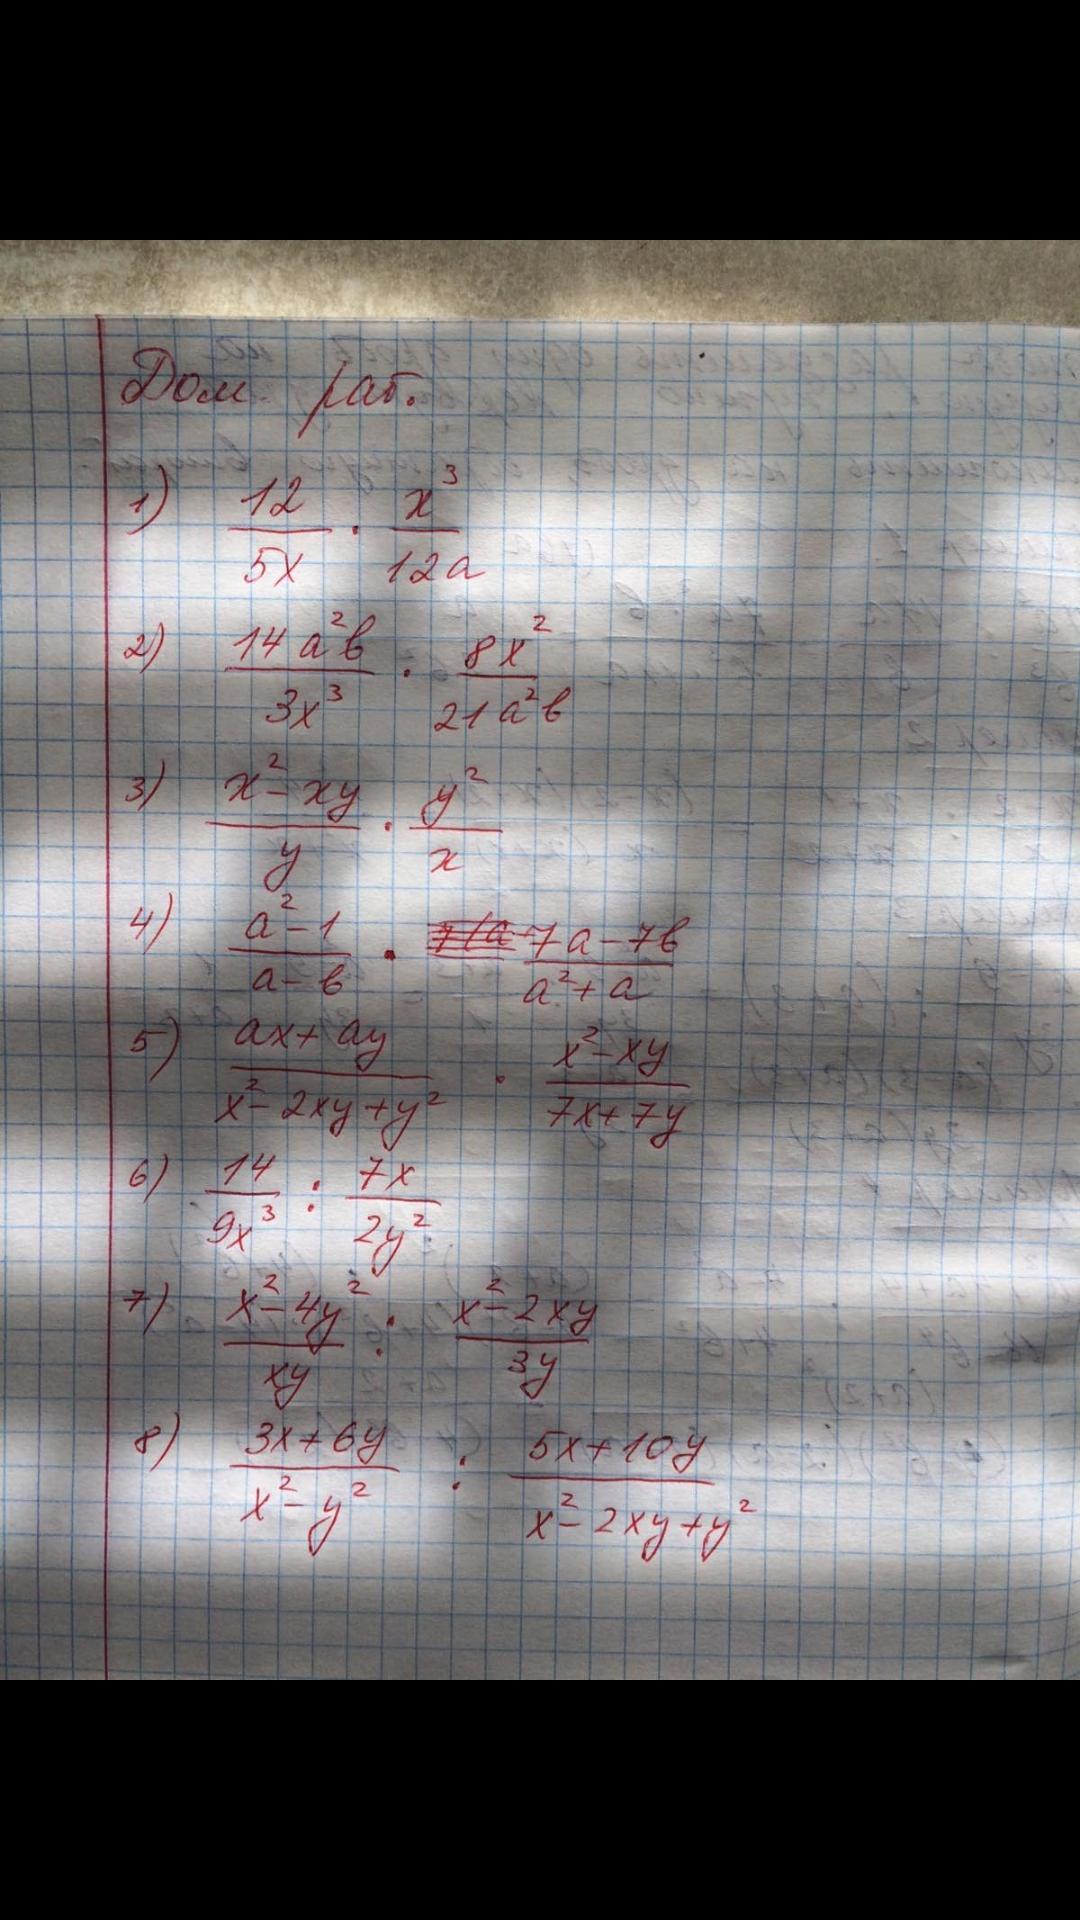 Дом. раб.
1) 12/5x · x³/12a
2) 14a²b/3x³ · 8x²/21a²b
3) x²-xy/y · y²/x
4) a²-1/a-b · 7a-7b/a²+a
5) ax+ay/x²-2xy+y² · x²-xy/7x+7y
6) 14/9x³ : 7x/2y²
7) x²-4y²/xy : x²-2xy/3y
8) 3x+6y/x²-y² : 5x+10y/x²-2xy+y²